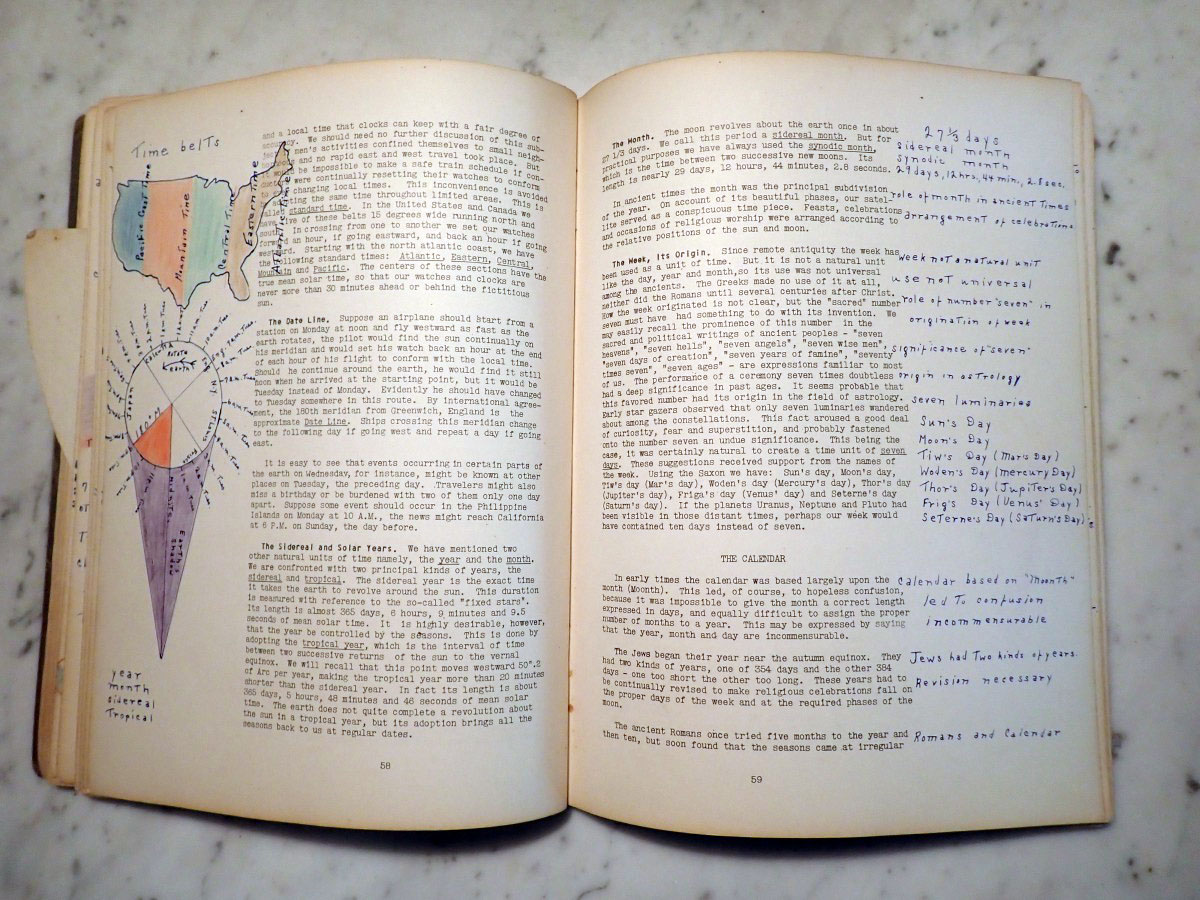 Time belts
Pacific Coast Time
Mountain Time
Central Time
Eastern Time
Atlantic Time
Earth's
Shadow
year
month
sidereal
Tropical
and a local time that clocks can keep with a fair degree of
We should need no further discussion of this sub-
men's activities confined themselves to small neigh-
and no rapid east and west travel took place. But
be impossible to make a safe train schedule if con-
were continually resetting their watches to conform
changing local times. This inconvenience is avoided
the same time throughout limited areas. This is
standard time. In the United States and Canada we
of these belts 15 degrees wide running north and
In crossing from one to another we set our watches
an hour, if going eastward, and back an hour if going
Starting with the north atlantic coast, we have
following standard times: Atlantic, Eastern, Central,
Mountain and Pacific. The centers of these sections have the
true mean solar time, so that our watches and clocks are
never more than 30 minutes ahead or behind the fictitious
sun.
The Date Line. Suppose an airplane should start from a
station on Monday at noon and fly westward as fast as the
earth rotates, the pilot would find the sun continually on
his meridian and would set his watch back an hour at the end
of each hour of his flight to conform with the local time.
Should he continue around the earth, he would find it still
noon when he arrived at the starting point, but it would be
Tuesday instead of Monday. Evidently he should have changed
to Tuesday somewhere in this route. By international agree-
ment, the 180th meridian from Greenwich, England is the
approximate Date Line. Ships crossing this meridian change
to the following day if going west and repeat a day if going
east.
It is easy to see that events occurring in certain parts of
the earth on Wednesday, for instance, might be known at other
places on Tuesday, the preceding day. Travelers might also
miss a birthday or be burdened with two of them only one day
apart. Suppose some event should occur in the Philippine
Islands on Monday at 10 A.M., the news might reach California
at 6 P.M. on Sunday, the day before.
The Sidereal and Solar Years. We have mentioned two
other natural units of time namely, the year and the month.
We are confronted with two principal kinds of years, the
sidereal and tropical. The sidereal year is the exact time
it takes the earth to revolve around the sun. This duration
is measured with reference to the so-called "fixed stars".
Its length is almost 365 days, 6 hours, 9 minutes and 9.5
seconds of mean solar time. It is highly desirable, however,
that the year be controlled by the seasons. This is done by
adopting the tropical year, which is the interval of time
between two successive returns of the sun to the vernal
equinox. We will recall that this point moves westward 50".2
of Arc per year, making the tropical year more than 20 minutes
shorter than the sidereal year. In fact its length is about
365 days, 5 hours, 48 minutes and 46 seconds of mean solar
time. The earth does not quite complete a revolution about
the sun in a tropical year, but its adoption brings all the
seasons back to us at regular dates.
58
The Month. The moon revolves about the earth once in about
27 1/3 days. We call this period a sidereal month. But for
practical purposes we have always used the synodic month,
which is the time between two successive new moons. Its
length is nearly 29 days, 12 hours, 44 minutes, 2.8 seconds.
In ancient times the month was the principal subdivision
of the year. On account of its beautiful phases, our satel-
lite served as a conspicuous time piece. Feasts, celebrations
and occasions of religious worship were arranged according to
the relative positions of the sun and moon.
The Week, Its Origin. Since remote antiquity the week has
been used as a unit of time. But it is not a natural unit
like the day, year and month,so its use was not universal
among the ancients. The Greeks made no use of it at all,
neither did the Romans until several centuries after Christ.
How the week originated is not clear, but the "sacred" number
seven must have had something to do with its invention. We
may easily recall the prominence of this number in the
sacred and political writings of ancient peoples - "seven
heavens", "seven hells", "seven angels", "seven wise men",
"seven days of creation", "seven years of famine", "seventy
times seven", "seven ages" - are expressions familiar to most
of us. The performance of a ceremony seven times doubtless
had a deep significance in past ages. It seems probable that
this favored number had its origin in the field of astrology.
Early star gazers observed that only seven luminaries wandered
about among the constellations. This fact aroused a good deal
of curiosity, fear and superstition, and probably fastened
onto the number seven an undue significance. This being the
case, it was certainly natural to create a time unit of seven
days. These suggestions received support from the names of
the week. Using the Saxon we have: Sun's day, Moon's day,
Tiw's day (Mar's day), Woden's day (Mercury's day), Thor's day
(Jupiter's day), Friga's day (Venus' day) and Seterne's day
(Saturn's day). If the planets Uranus, Neptune and Pluto had
been visible in those distant times, perhaps our week would
have contained ten days instead of seven.
THE CALENDAR
In early times the calendar was based largely upon the
month (Moonth). This led, of course, to hopeless confusion,
because it was impossible to give the month a correct length
expressed in days, and equally difficult to assign the proper
number of months to a year. This may be expressed by saying
that the year, month and day are incommensurable.
The Jews began their year near the autumn equinox. They
had two kinds of years, one of 354 days and the other 384
days - one too short the other too long. These years had to
be continually revised to make religious celebrations fall on
the proper days of the week and at the required phases of the
moon.
The ancient Romans once tried five months to the year and
then ten, but soon found that the seasons came at irregular
59
27 1/3 days
Sidereal month
Synodic month
29 days, 12 hrs, 44 min., 2.8 sec.
role of month in ancient Times
arrangement of celebrations
week not a natural unit
use not universal
role of number "seven" in
origination of week
significance of "seven"
origin in astrology
seven luminaries
Sun's Day
Moon's Day
Tiw's Day (Mar's Day)
Woden's Day (Mercury Day)
Thor's Day (Jupiter's Day)
Frig's Day (Venus' Day)
Seterne's Day (Saturn's Day)
Calendar based on "Moonth"
led To confusion
incommensurable
Jews had Two kinds of years.
Revision necessary
Romans and Calendar